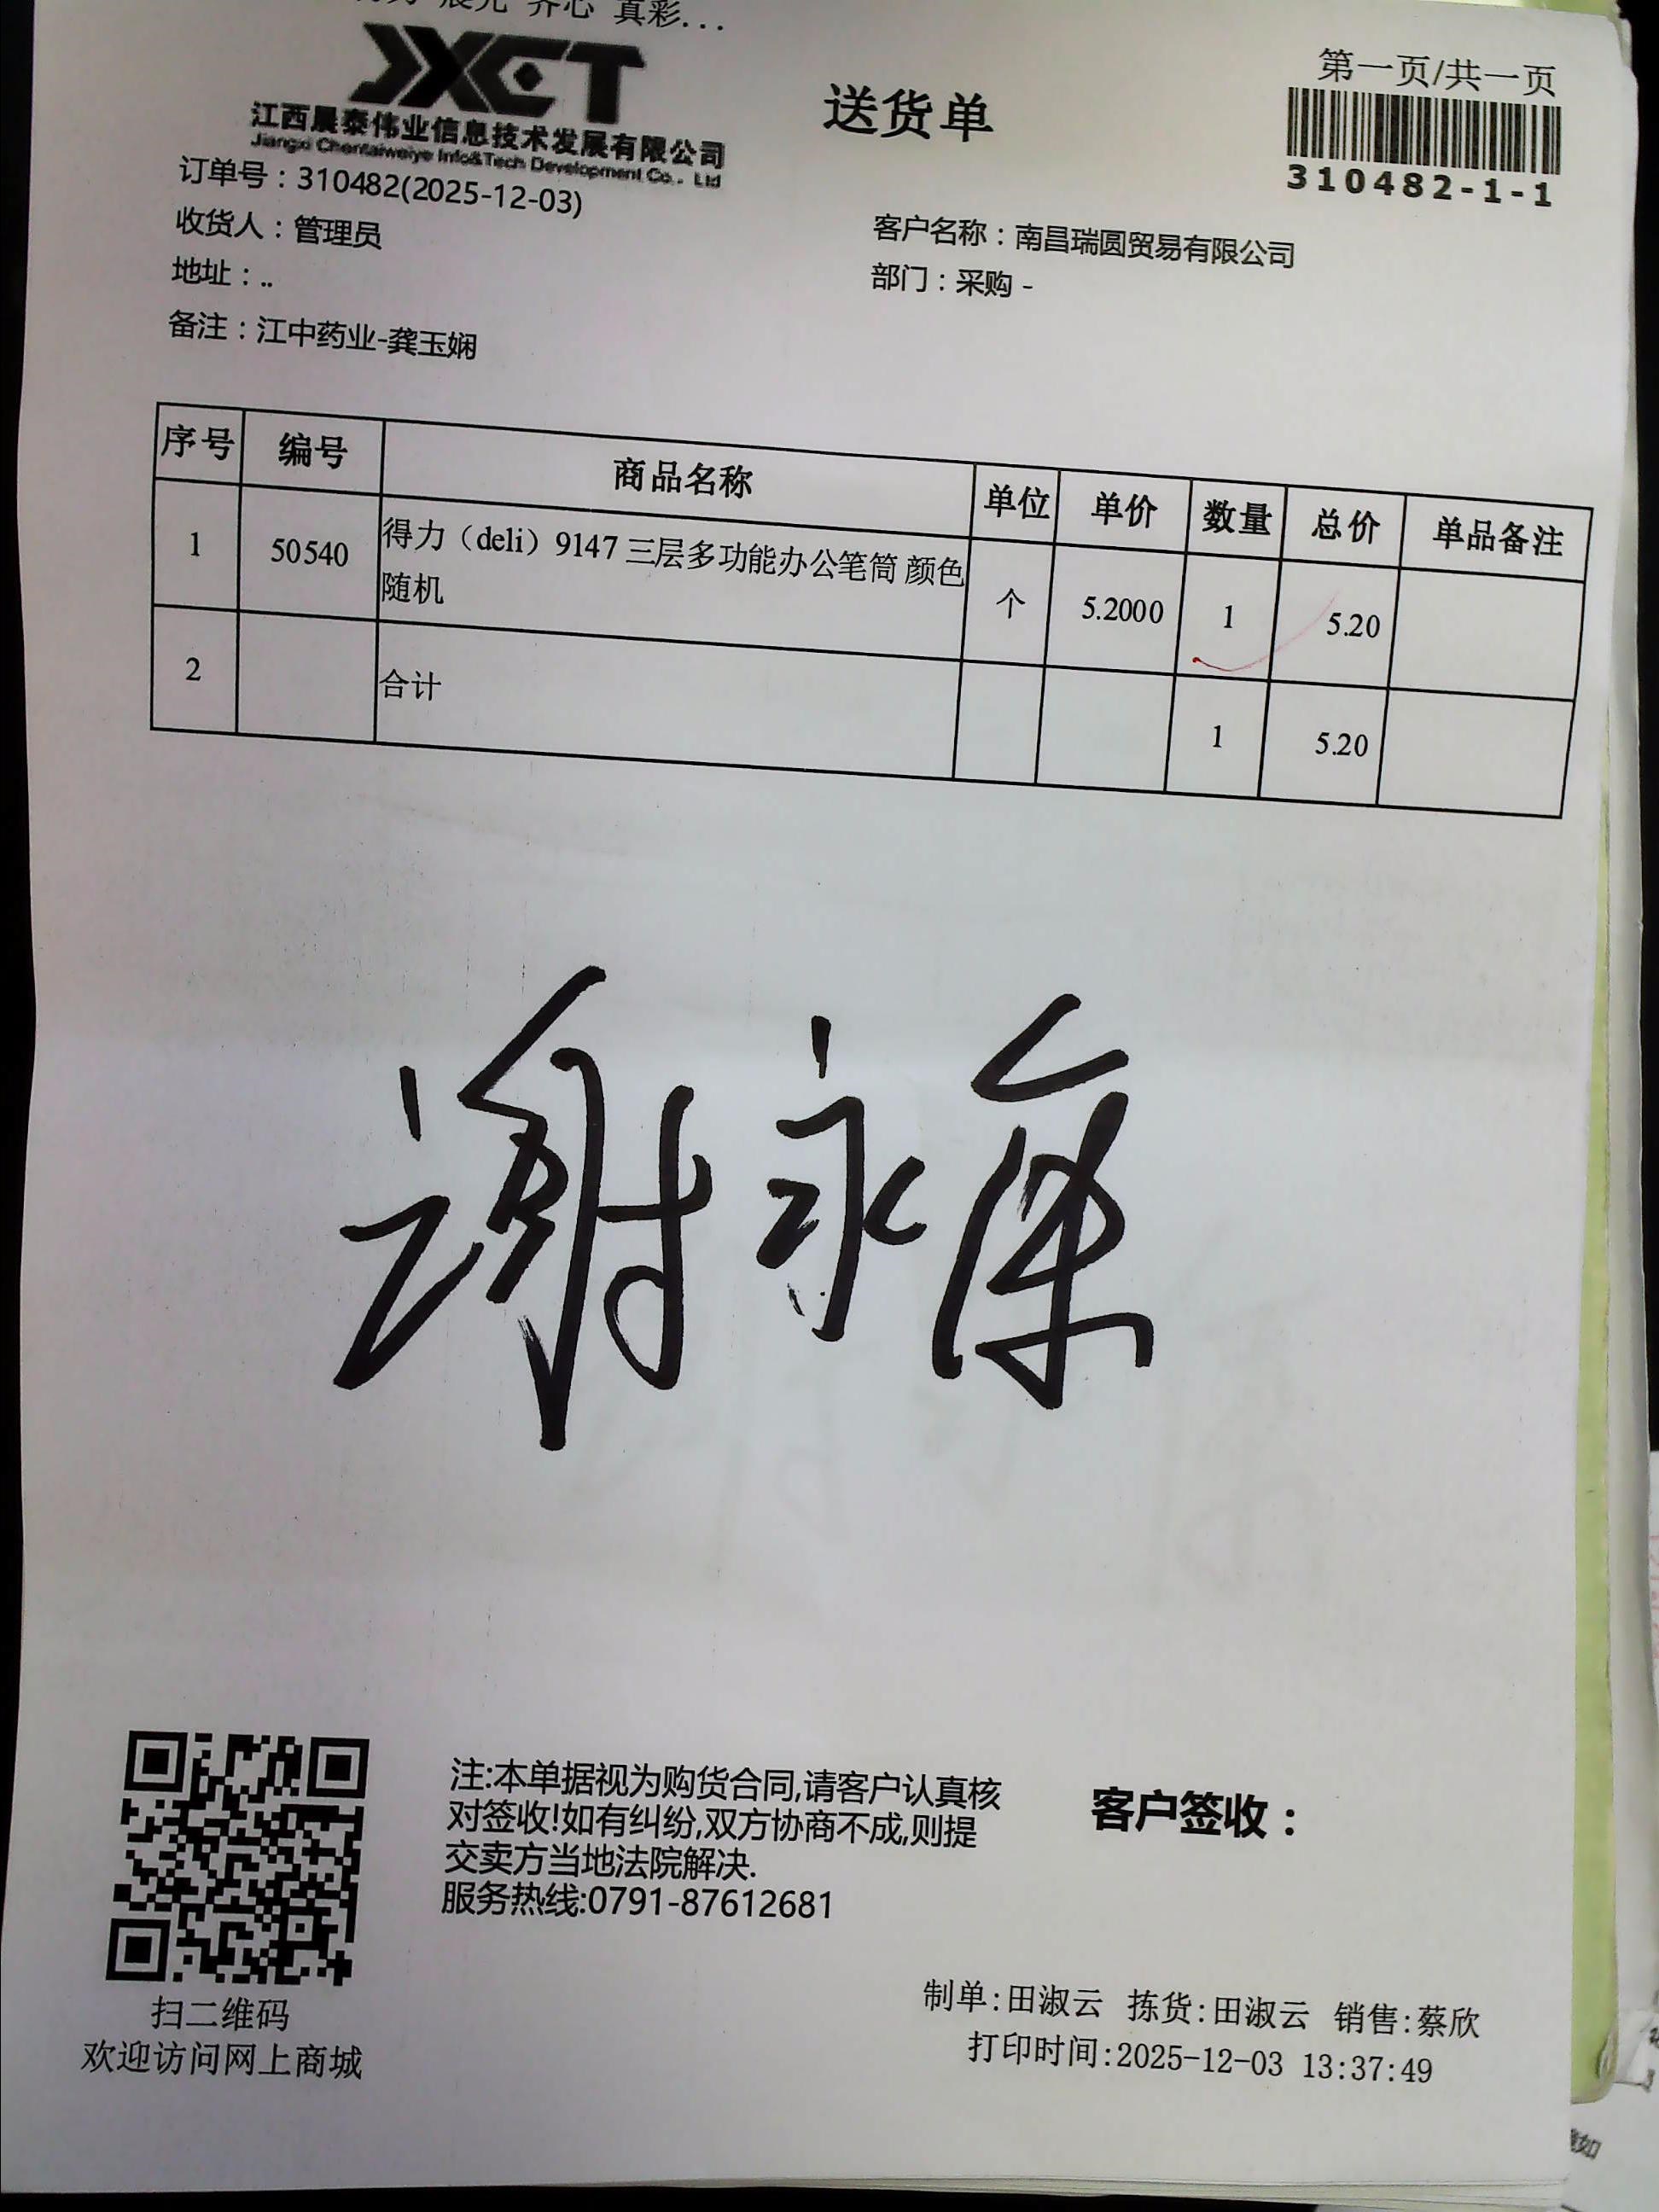 晨光 齐心 真彩...
JXCT
江西晨泰伟业信息技术发展有限公司
Jiangxi Chentaiweiye Info&Tech Development Co., Ltd
送货单
第一页/共一页
310482-1-1
订单号：310482(2025-12-03)
收货人：管理员
客户名称：南昌瑞圆贸易有限公司
地址：..
部门：采购 -
备注：江中药业-龚玉娴
序号 编号 商品名称 单位 单价 数量 总价 单品备注
1 50540 得力（deli）9147 三层多功能办公笔筒 颜色
随机 个 5.2000 1 5.20
2 合计 1 5.20
谢永
注:本单据视为购货合同,请客户认真核
对签收!如有纠纷,双方协商不成,则提
交卖方当地法院解决.
服务热线:0791-87612681
客户签收：
扫二维码
欢迎访问网上商城
制单:田淑云 拣货:田淑云 销售:蔡欣
打印时间:2025-12-03 13:37:49